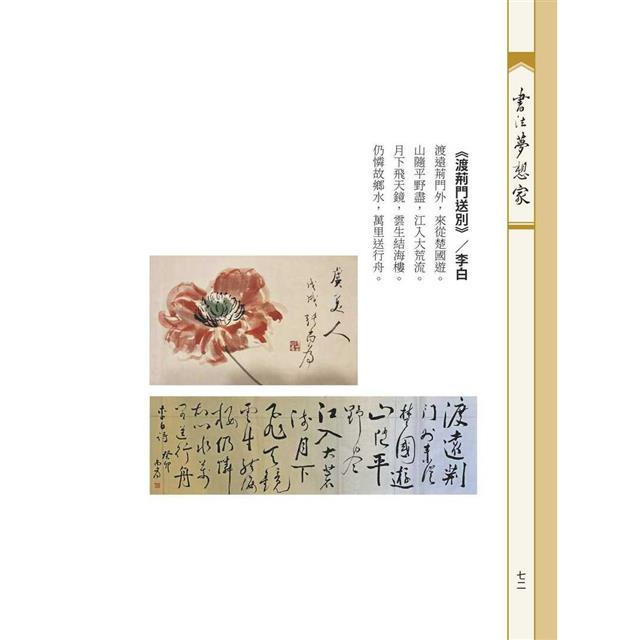 書法夢想家
《渡荊門送別》／李白
渡遠荊門外，來從楚國遊。
山隨平野盡，江入大荒流。
月下飛天鏡，雲生結海樓。
仍憐故鄉水，萬里送行舟。
虞美人
戊戌
渡遠荊
门外来從
楚國遊
山随平
野尽
江入大荒
流月下
飛天鏡
雲生結海
樓仍憐
故鄉水萬
里送行舟
李白詩 癸卯
七二